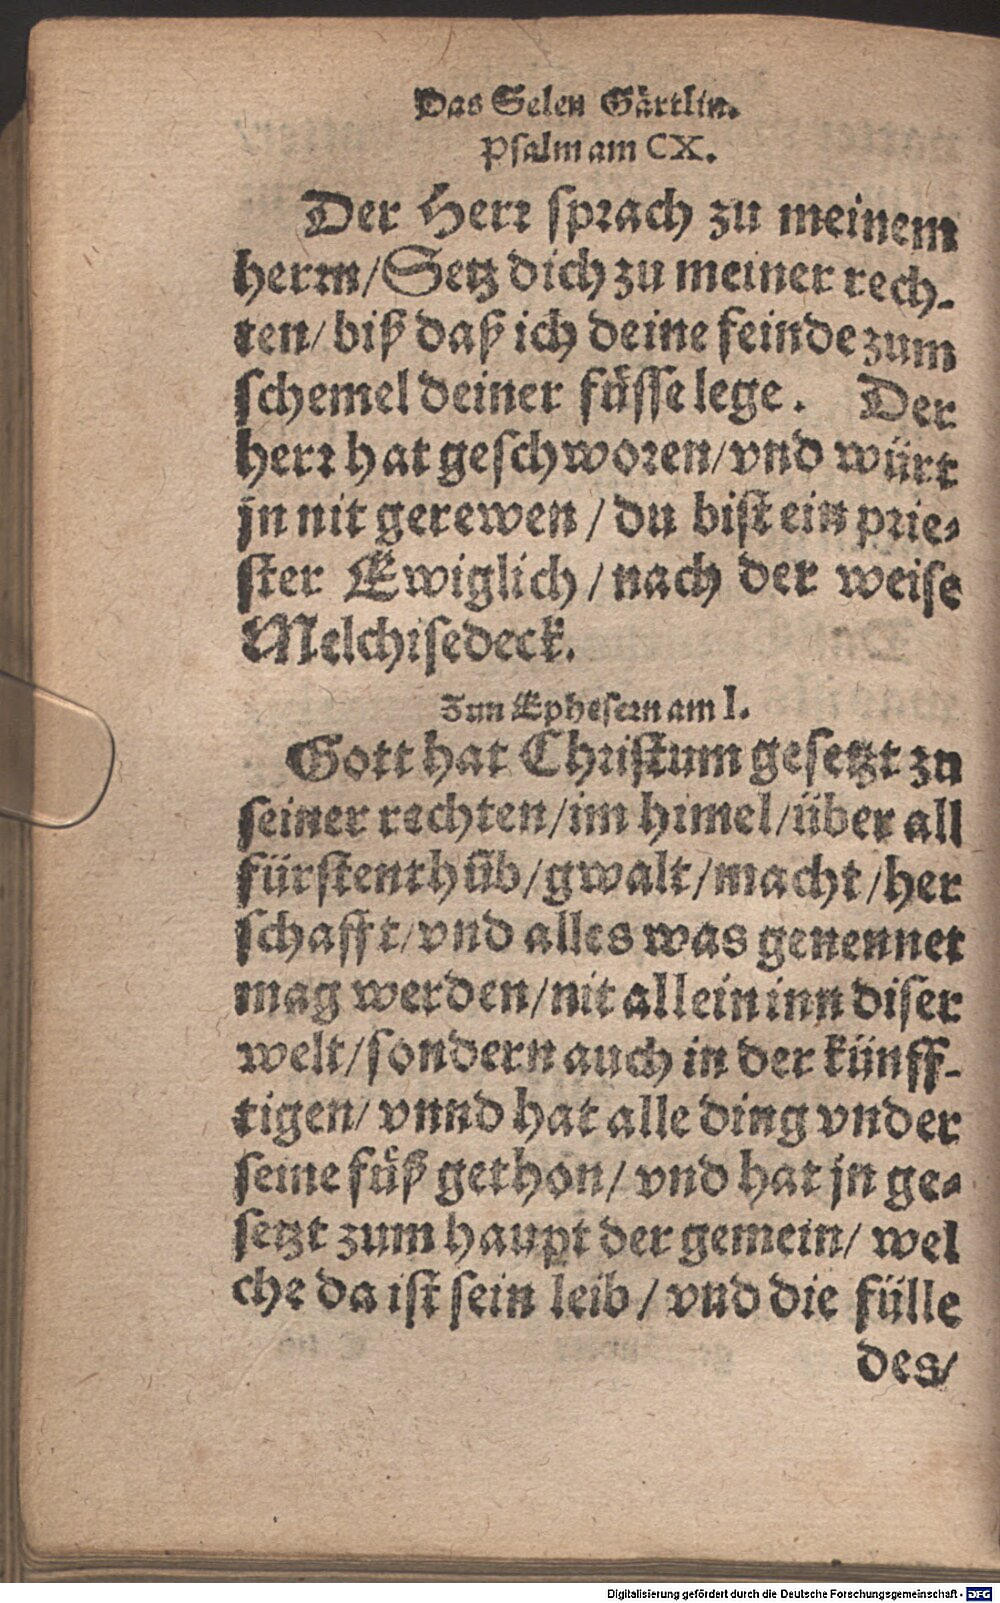 Das Selen Gärtlin.
Psalm am CX.
Der Herr sprach zu meinem
herrn/Setz dich zu meiner rech-
ten/ biß daß ich deine feinde zum
schemel deiner füsse lege. Der
herr hat geschworen/vnd würt
jn nit gerewen / du bist ein prie-
ster Ewiglich / nach der weise
Melchisedeck.
Zun Ephesern am I.
Gott hat Christum gesetzt zu
seiner rechten/im himel/über all
fürstenthũb/gwalt/macht/her
schafft/vnd alles was genennet
mag werden/nit allein inn diser
welt/sondern auch in der künff-
tigen/ vnnd hat alle ding vnder
seine füß gethon/ vnd hat jn ge-
setzt zum haupt der gemein/ wel
che da ist sein leib / vnd die fülle
des/
Digitalisierung gefördert durch die Deutsche Forschungsgemeinschaft - DFG